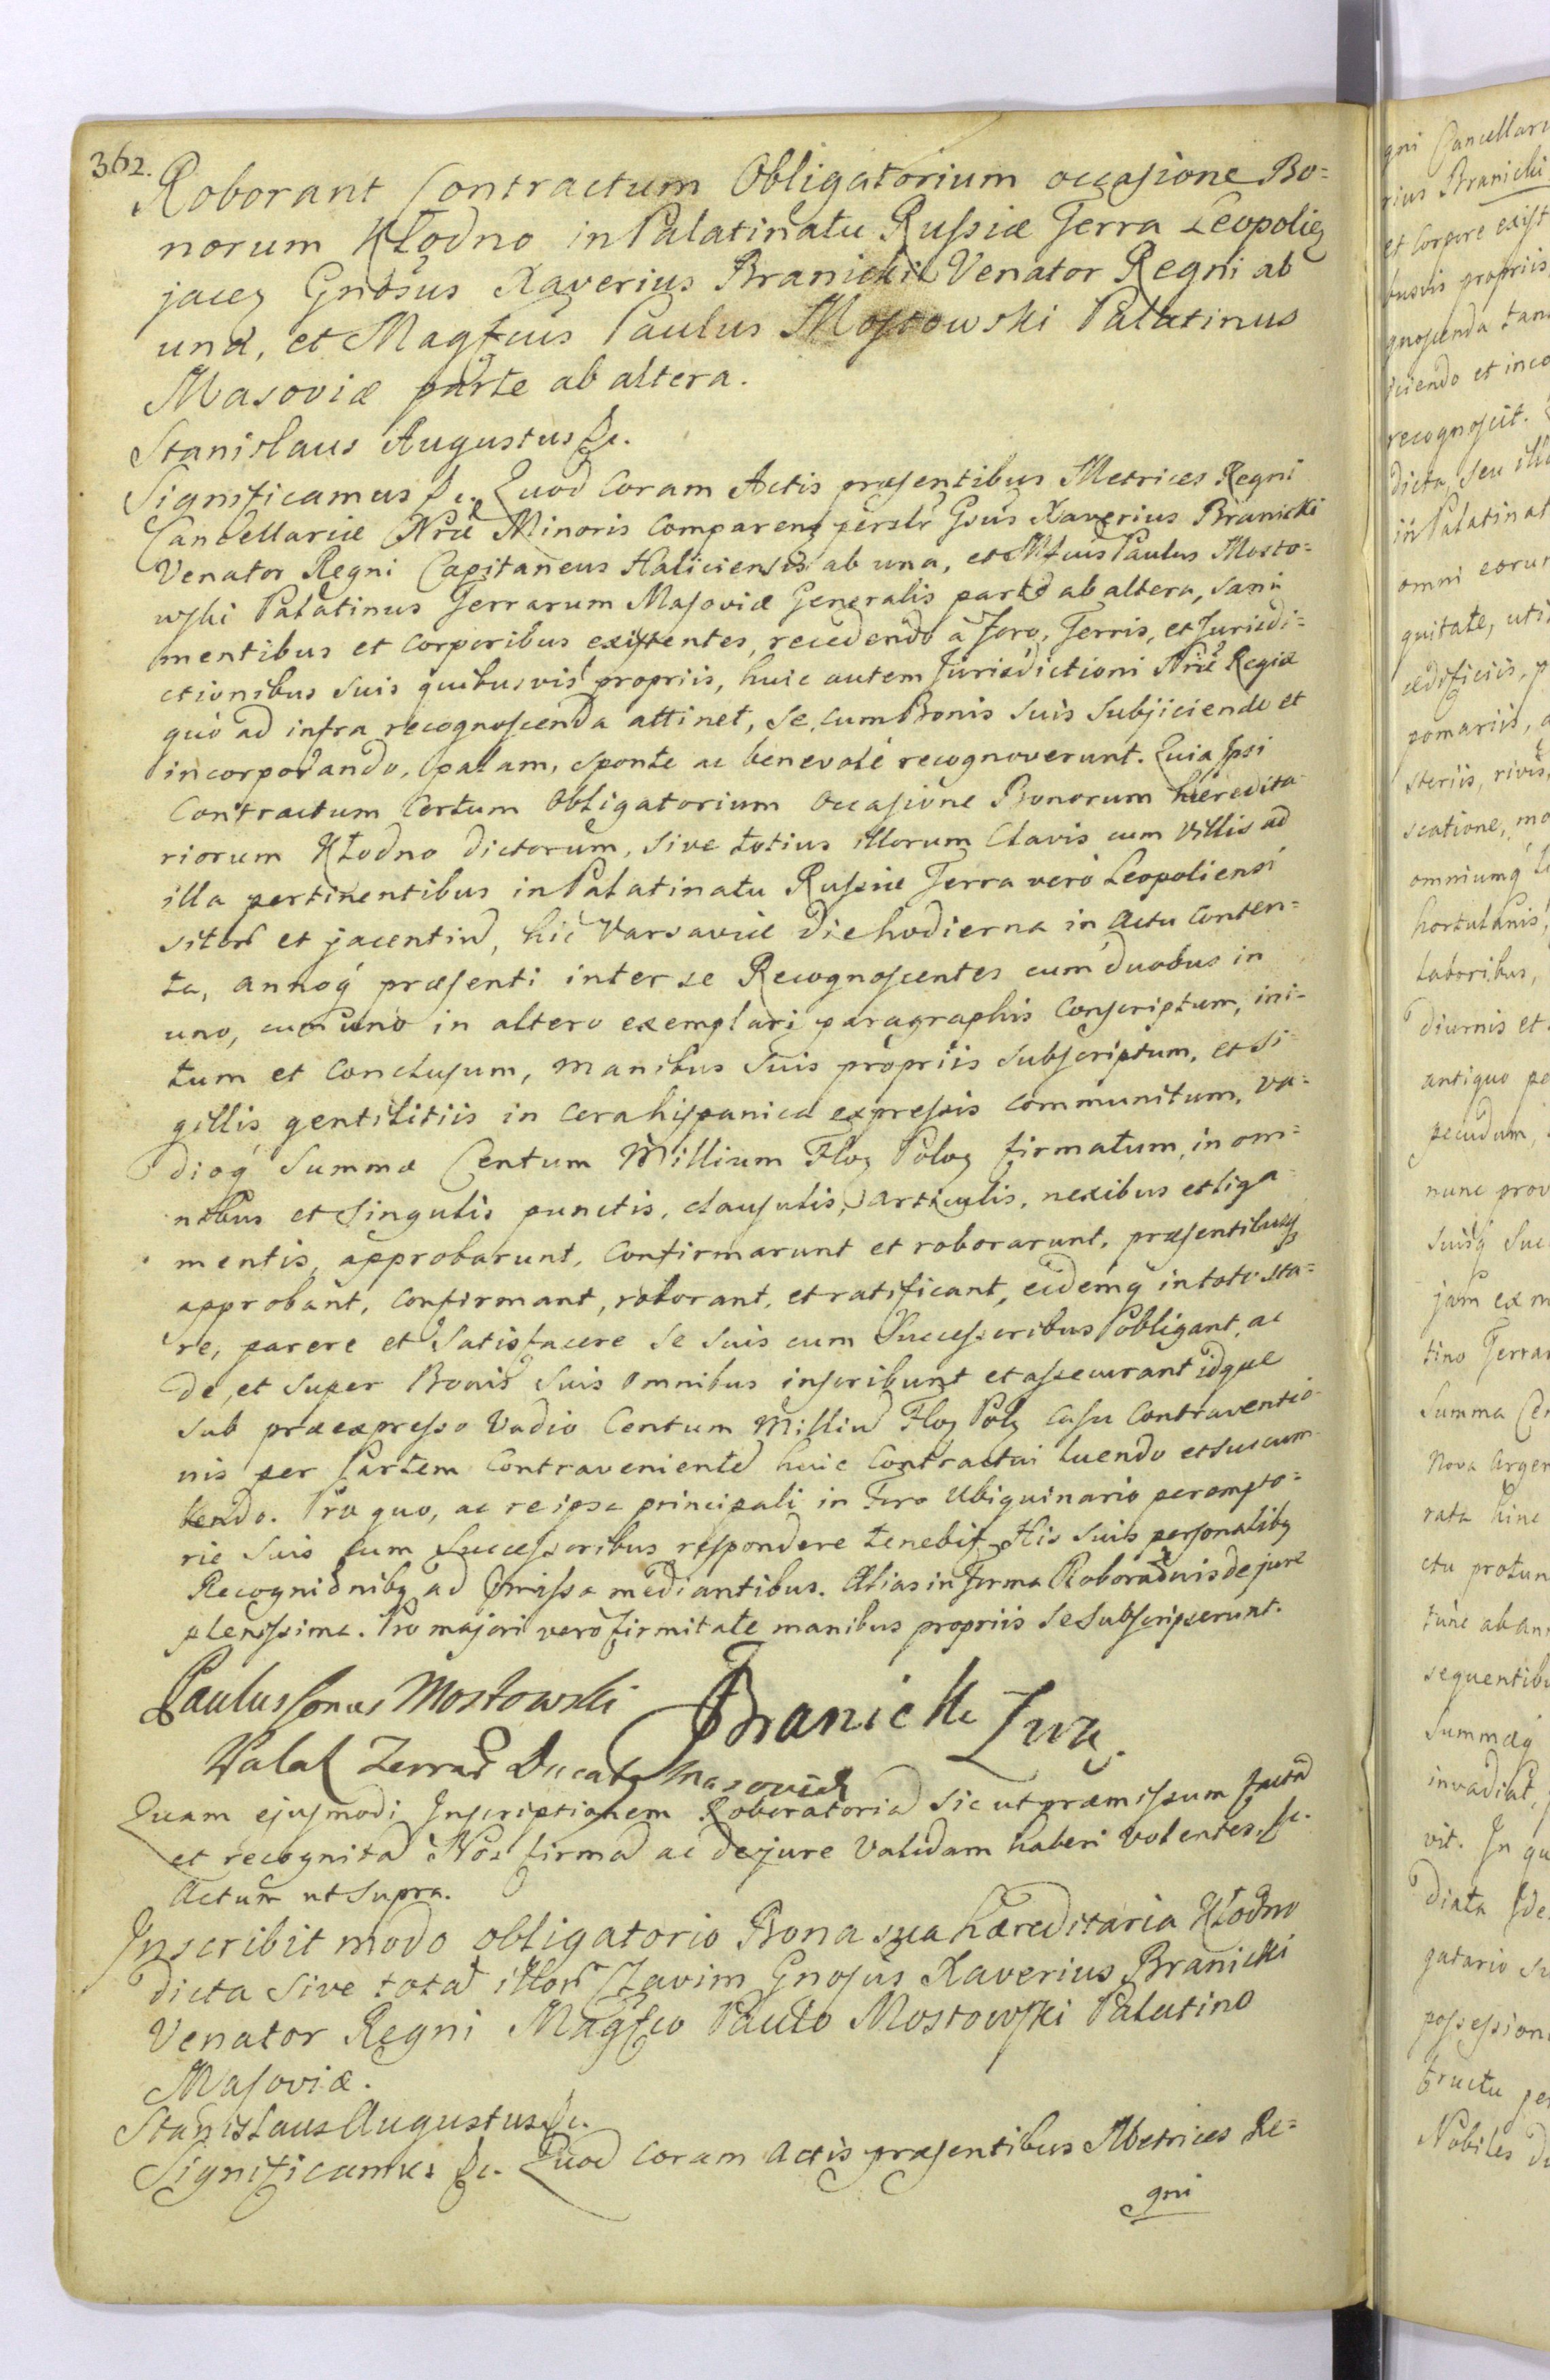 362.
Roborant Contractum Obligatorium occasione Bo=
norum Kłodno in Palatinatu Russiæ Terra Leopolien
jacen Gnosus Xaverius Branicki Venator Regni ab
una, et Magfcus Paulus Mostowski Palatinus
Masoviæ parte ab altera.
Stanislaus Augustus &c.
Significamus &c. Quod Coram Actis præsentibus Metrices Regni
Cancellariæ Nræ Minoris Comparens persлr Gsus Xaverius Branicki
Venator Regni Capitaneus Haliciensis ab una, et Mfcus Paulus Mosto=
wski Palatinus Terrarum Masoviæ Generalis parte ab altera, sani
mentibus et corporibus existentes, recedendo à Foro, Terris, et Jurisdi=
ctionibus suis quibusvis propriis, huic autem Jurisdictioni Nræ Regiæ
quò ad infra recognoscenda attinet, se, cum Bonis suis subjiciendo et
incorporando, palam, sponte ac benevolè recognoverunt. Quia Ipsi
Contractum Certum Obligatorium Occasione Bonorum hæredita=
riorum Kłodno dictorum, sive totius illorum Clavis cum Villis ad
illa pertinentibus in Palatinatu Russiæ Terra verò Leopoliensi
sitor et jacentiu, hic Varsaviæ die hodierna in Actu Conten=
ta, annoq præsenti inter se Recognoscentes cum duobus in
uno, cum uno in altero exemplari paragraphis Conscriptum, ini=
tum et Conclusum, manibus suis propriis subscriptum, et si=
gillis gentilitiis in cera hispanica expressis communitum, va=
dioq Summæ Centum Millium Flor Polor firmatum, in om=
nibus et singulis punctis, clausulis, articulis, nexibus et liga=
mentis, approbarunt, Confirmarunt et roborarunt, præsentibusq
approbant, confirmant, roborant, et ratificant, eidemq in toto sta=
re, parere et satisfacere se suis cum Successoribus obligant, ac
de, et super Bonis suis omnibus inscribunt et assecurant idque
sub præexpresso Vadio Centum Milliu Flor Pol casu Contraventio=
nis per Partem Contraveniente huic Contractui luendo et succum=
bendo. Pro quo, ac re ipsa principali in Foro Ubiquinario perempto=
rie suis cum Successoribus respondere tenebit His suis personalibq
Recognionibq ad præmissa mediantibus. Alias in Forma Roboraonis de jure
plenissima. Pro majori verò firmitate manibus propriis se subscripserunt.
Paulus Comes Mostowski Branicki Ł W K.
Palat Terrar Ducatq Masoviæ
Quam ejusmodi Inscriptionem Roboratoria sic ut præmissum facta
et recognita Nos firma ac de jure Validam haberi Volentes. &c.
Actum ut supra.
Inscribit modo obligatorio Bona sua hæreditaria Kłodno
dicta sive tota illor Clavim Gnosus Xaverius Branicki
Venator Regni Magfco Paulo Mostowski Palatino
Masoviæ.
Stanislaus Augustus &c.
Significamus &c. Quod Coram Actis præsentibus Metrices Re=
gni
gni Cancellari
rius Branicki
et Corpore exist
busvis propriis
gnoscenda tan
iciendo et inco
recognoscit.
dicta, seu
in Palatinat
omni eorum
quitate, uti
ædificiis, p
pomariis, a
steriis, rivis,
scatione, mo
omniumq
hortulanis,
laboribus,
diurnis et
antiquo pe
pecudum,
nunc prov
suisq Suc
jam ex m
tino Terrar
Summa Cen
Nova Argen
rata hinc
ctu protun
tunc ab an
sequentibu
Summæq
invadiat,
vit. In qu
diata Ide
gatario su
possession
fructu pe
Nobiles